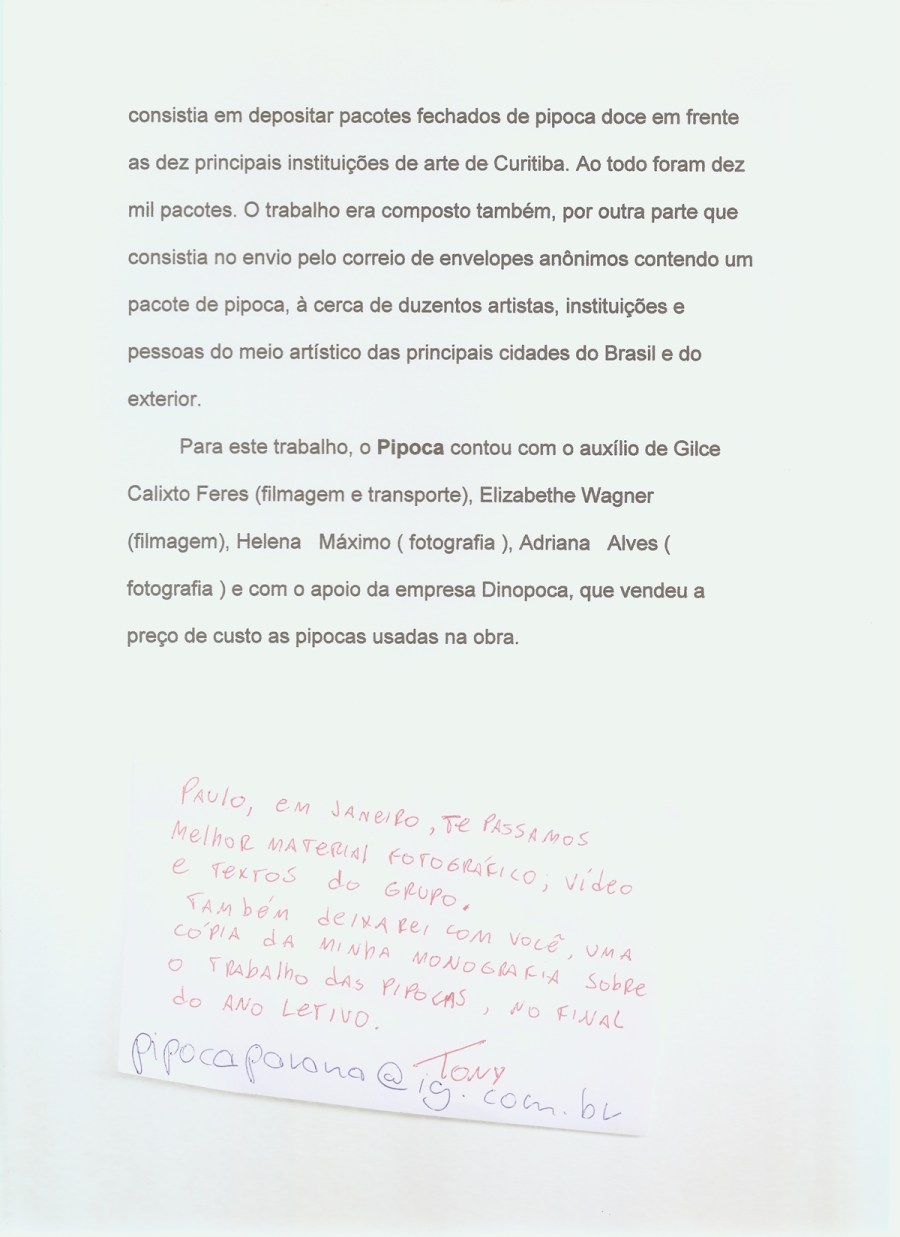 consistia em depositar pacotes fechados de pipoca doce em frente
as dez principais instituições de arte de Curitiba. Ao todo foram dez
mil pacotes. O trabalho era composto também, por outra parte que
consistia no envio pelo correio de envelopes anônimos contendo um
pacote de pipoca, à cerca de duzentos artistas, instituições e
pessoas do meio artístico das principais cidades do Brasil e do
exterior.
Para este trabalho, o Pipoca contou com o auxílio de Gilce
Calixto Feres (filmagem e transporte), Elizabethe Wagner
(filmagem), Helena Máximo ( fotografia ), Adriana Alves (
fotografia ) e com o apoio da empresa Dinopoca, que vendeu a
preço de custo as pipocas usadas na obra.
PAULO, EM JANEIRO, TE PASSAMOS
MELHOR MATERIAL FOTOGRÁFICO, VÍDEO
E TEXTOS DO GRUPO.
TAMBÉM DEIXAREI COM VOCÊ, UMA
CÓPIA DA MINHA MONOGRAFIA SOBRE
O TRABALHO DAS PIPOCAS, NO FINAL
DO ANO LETIVO.
TONY
pipocaparana@ig.com.br